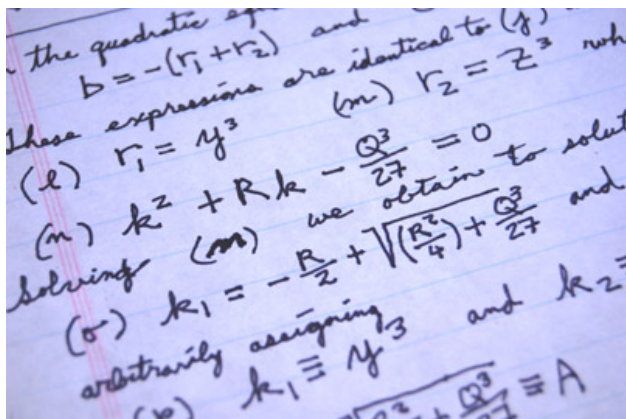 the quadratic
b = -(r₁ + r₂) and
These expressions are identical to (j)
(l) r₁ = y³ (m) r₂ = z³
(n) k² + Rk - Q³/27 = 0
Solving (m) we obtain to
(o) k₁ = -R/2 + √(R²/4) + Q³/27 and
arbitrarily assigning
k₁ ≡ y³ and k₂ =
+ Q³/27 ≡ A